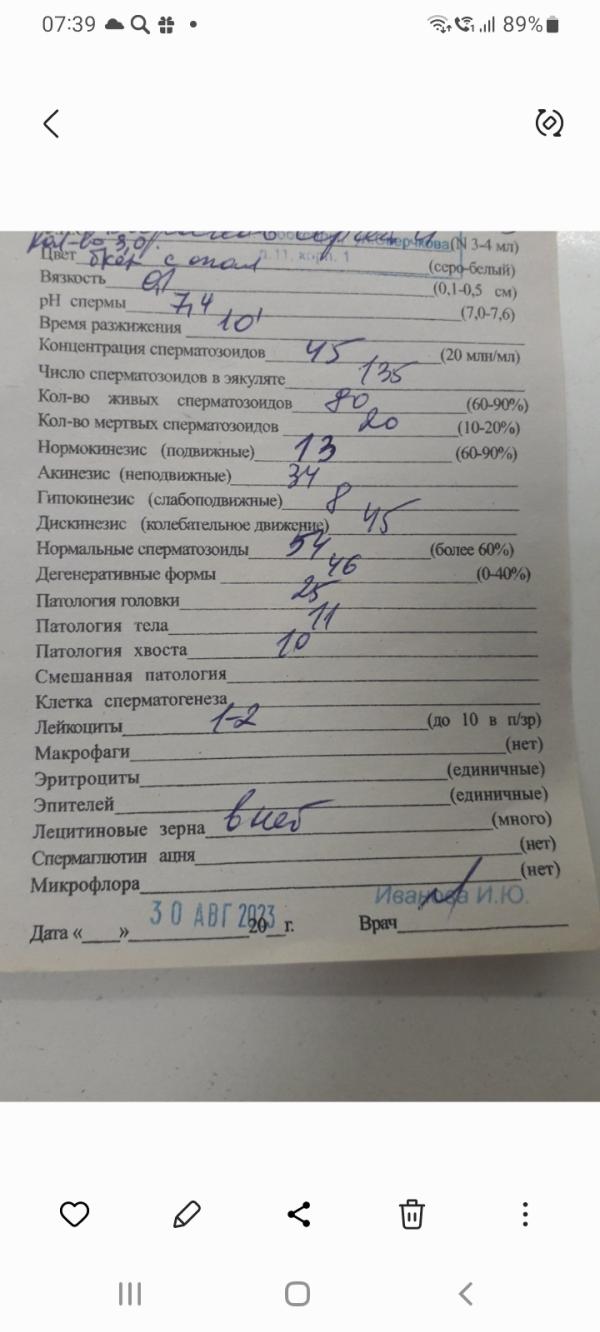 07:39 89%
Кол-во 3,0. (N 3-4 мл)
Цвет с опал (серо-белый)
п.11, корп. 1
Вязкость 0,1 (0,1-0,5 см)
pH спермы 7,4 (7,0-7,6)
Время разжижения 10'
Концентрация сперматозоидов 45 (20 млн/мл)
Число сперматозоидов в эякуляте 135
Кол-во живых сперматозоидов 80 (60-90%)
Кол-во мертвых сперматозоидов 20 (10-20%)
Нормокинезис (подвижные) 13 (60-90%)
Акинезис (неподвижные) 34
Гипокинезис (слабоподвижные) 8
Дискинезис (колебательное движение) 45
Нормальные сперматозоиды 54 (более 60%)
Дегенеративные формы 46 (0-40%)
Патология головки 25
Патология тела 11
Патология хвоста 10
Смешанная патология
Клетка сперматогенеза
Лейкоциты 1-2 (до 10 в п/зр)
Макрофаги (нет)
Эритроциты (единичные)
Эпителей (единичные)
Лецитиновые зерна (много)
Спермаглютин ация (нет)
Микрофлора (нет)
Иванова И.Ю.
Дата «__» 30 АВГ 2023 20__г. Врач